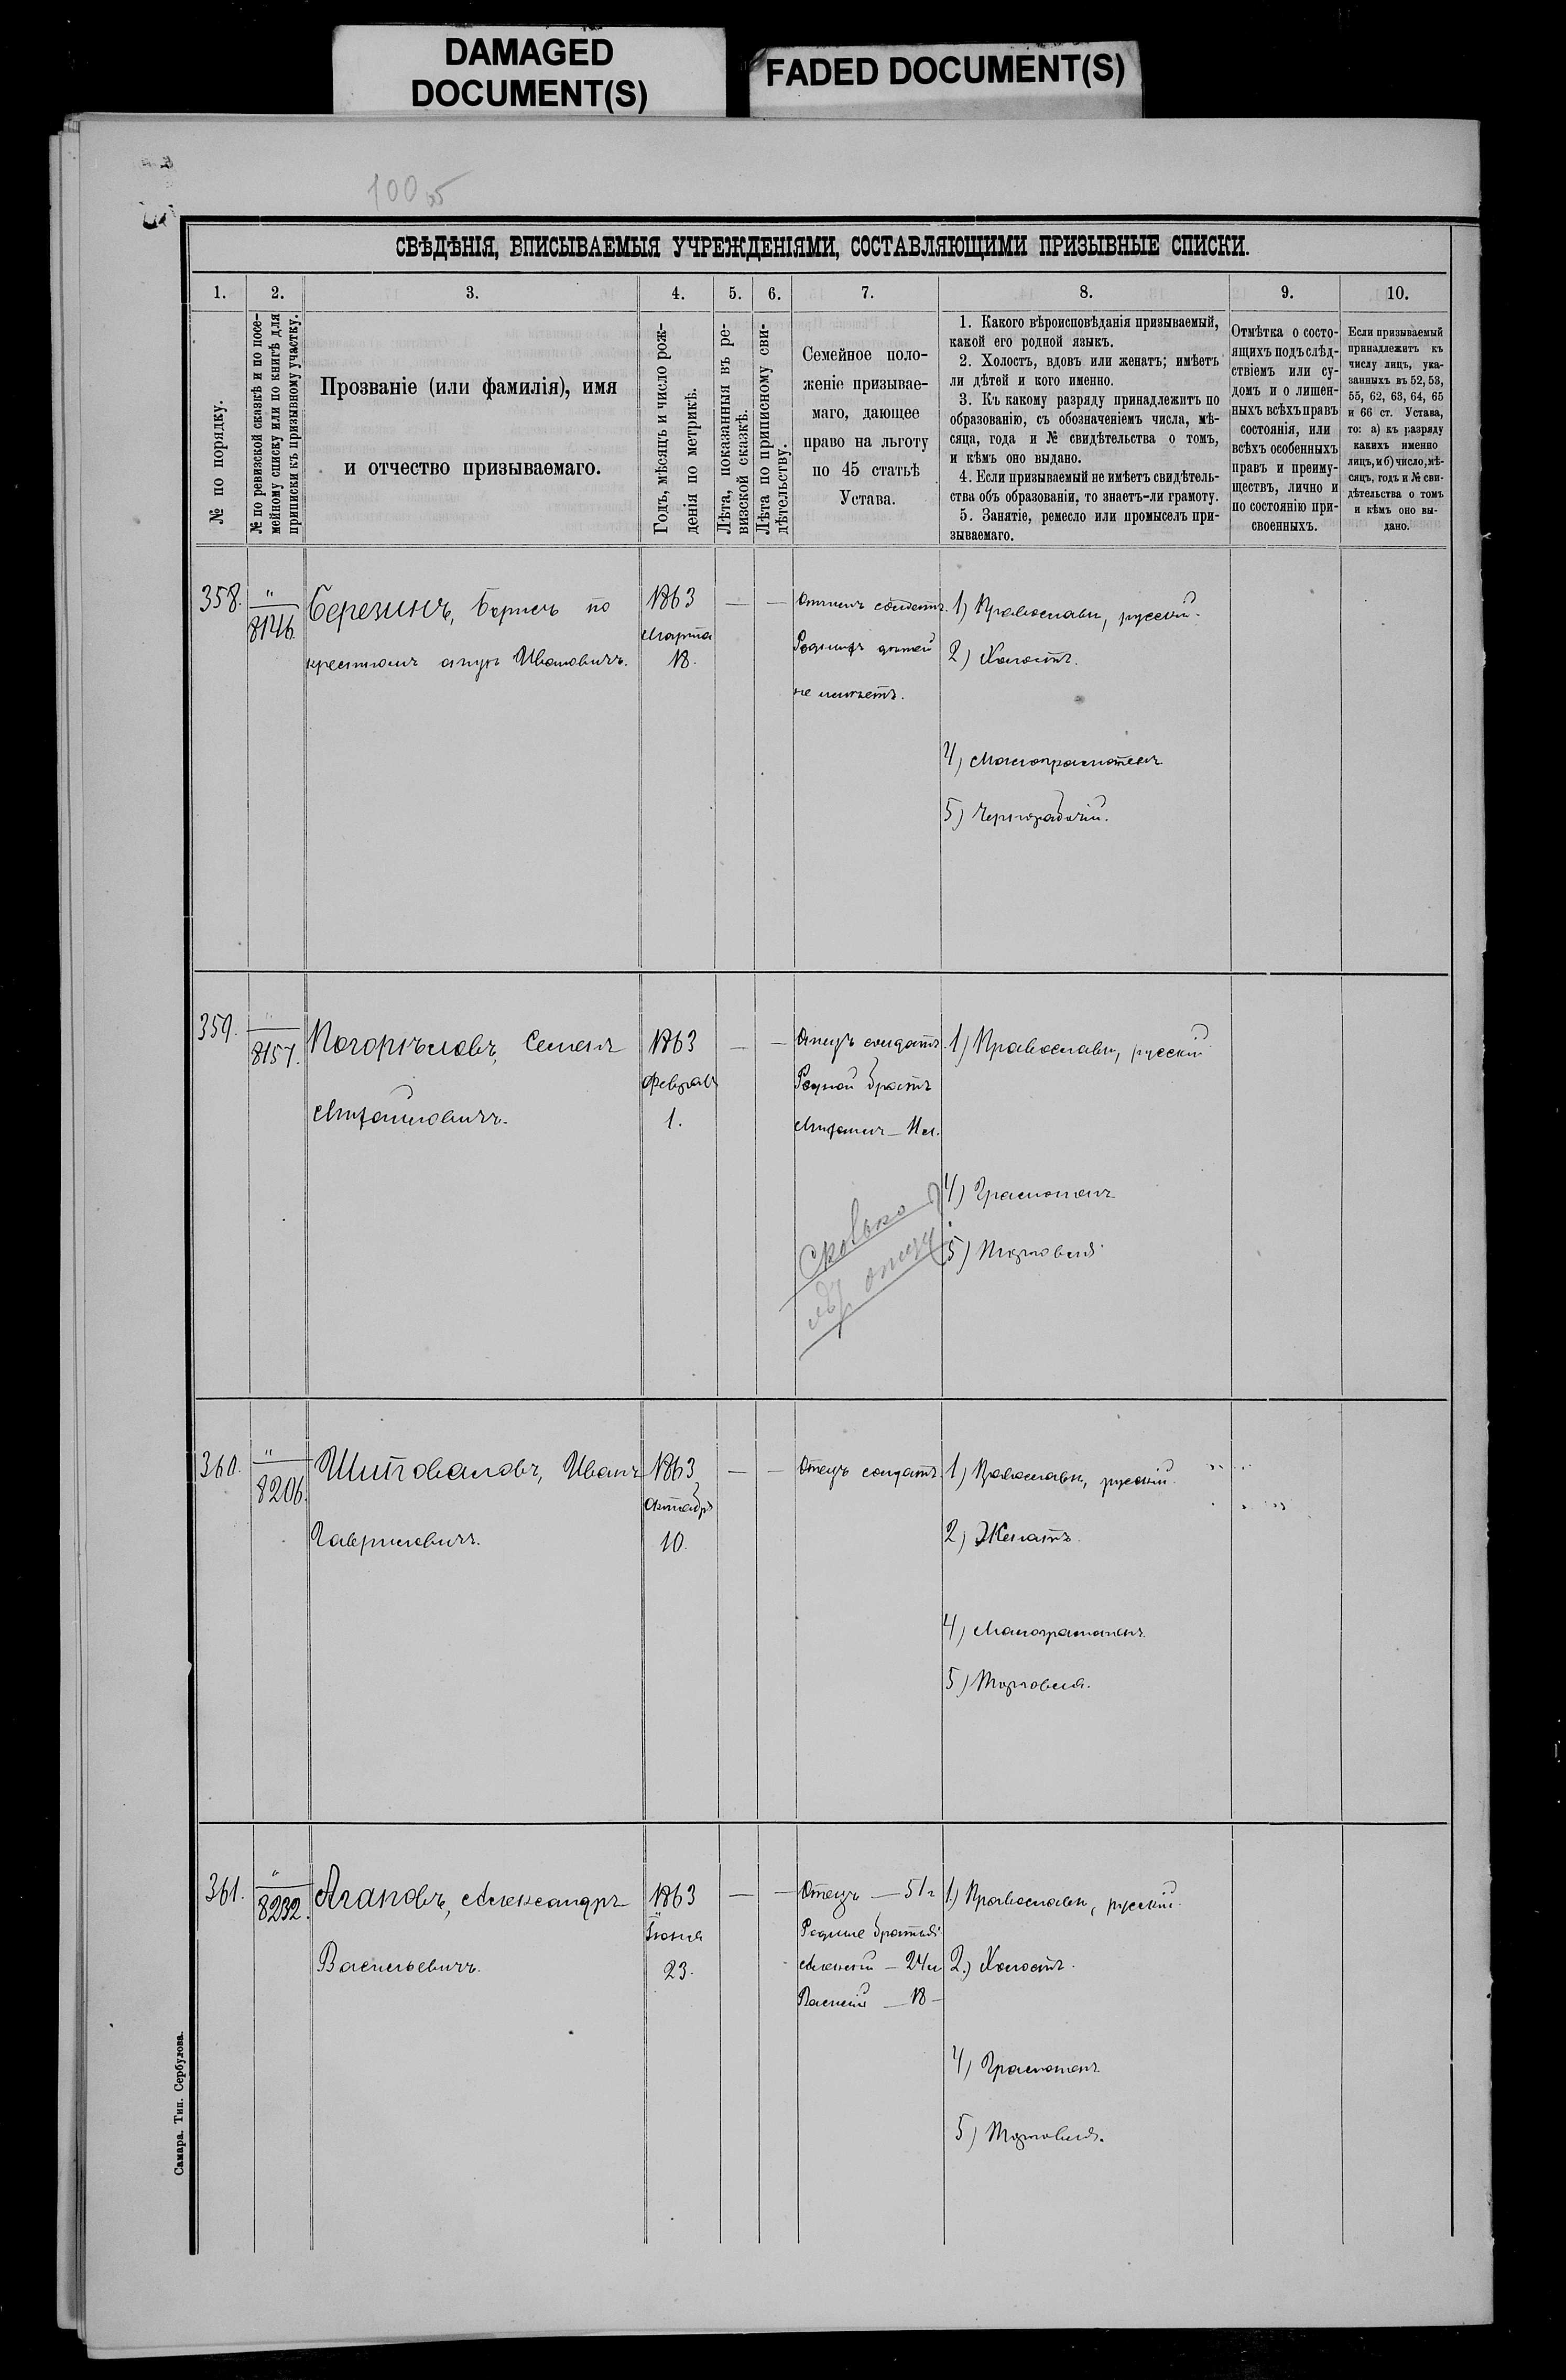 DAMAGED
DOCUMENT(S)
FADED DOCUMENT(S)
100
СВѢДѢНІЯ, ВПИСЫВАЕМЫЯ УЧРЕЖДЕНІЯМИ, СОСТАВЛЯЮЩИМИ ПРИЗЫВНЫЕ СПИСКИ.
1. 2. 3. 4. 5. 6. 7. 8. 9. 10.
№ по порядку.
№ по ревизской сказкѣ и по посе-
мейному списку или по книгѣ для
приписки къ призывному участку.
Прозваніе (или фамилія), имя
и отчество призываемаго.
Годъ, мѣсяцъ и число рож-
денія по метрикѣ.
Лѣта, показанныя въ ре-
визской сказкѣ.
Лѣта по приписному сви-
дѣтельству.
Семейное поло-
женіе призывае-
маго, дающее
право на льготу
по 45 статьѣ
Устава.
1. Какого вѣроисповѣданія призываемый,
какой его родной языкъ.
2. Холостъ, вдовъ или женатъ; имѣетъ
ли дѣтей и кого именно.
3. Къ какому разряду принадлежитъ по
образованію, съ обозначеніемъ числа, мѣ-
сяца, года и № свидѣтельства о томъ,
и кѣмъ оно выдано.
4. Если призываемый не имѣетъ свидѣтель-
ства объ образованіи, то знаетъ-ли грамоту.
5. Занятіе, ремесло или промыселъ при-
зываемаго.
Отмѣтка о состо-
ящихъ подъ слѣд-
ствіемъ или су-
домъ и о лишен-
ныхъ всѣхъ правъ
состоянія, или
всѣхъ особенныхъ
правъ и преиму-
ществъ, лично и
по состоянію при-
своенныхъ.
Если призываемый
принадлежитъ къ
числу лицъ, ука-
занныхъ въ 52, 53,
55, 62, 63, 64, 65
и 66 ст. Устава,
то: а) къ разряду
какихъ именно
лицъ, и б) число, мѣ-
сяцъ, годъ и № сви-
дѣтельства о томъ
и кѣмъ оно вы-
дано.
358.
"
8146.
Березинъ, Борисъ по
крестному отцу Ивановичъ.
1863
Марта
18.
— —
Отчимъ солдатъ.
Родныхъ дѣтей
не имѣетъ.
1) Православн, русскій.
2) Холостъ.
4) Малограмотенъ.
5) Чернорабочій.
359.
"
8157.
Погорѣловъ, Семенъ
Михайловичъ.
1863
Февраля
1.
— —
Отецъ солдатъ.
Родной братъ
Михаилъ — 11 л.
Сколько
отцу
1) Православн, русскій
4) Грамотенъ
5) Торговля
360.
"
8206.
Шиповаловъ, Иванъ
Гавриловичъ.
1863
Октября
10.
— —
Отецъ солдатъ
1) Православн, русскій.
2) Женатъ.
4) Малограмотенъ.
5) Торговля.
361.
"
8232.
Агаповъ, Александръ
Васильевичъ.
1863
Іюня
23.
— —
Отецъ — 51 г
Родные братья:
Алексѣй — 24 л
Василій — 18 —
1) Православн, русскій.
2.) Холостъ.
4) Грамотенъ
5) Торговля.
Самара. Тип. Сербулова.